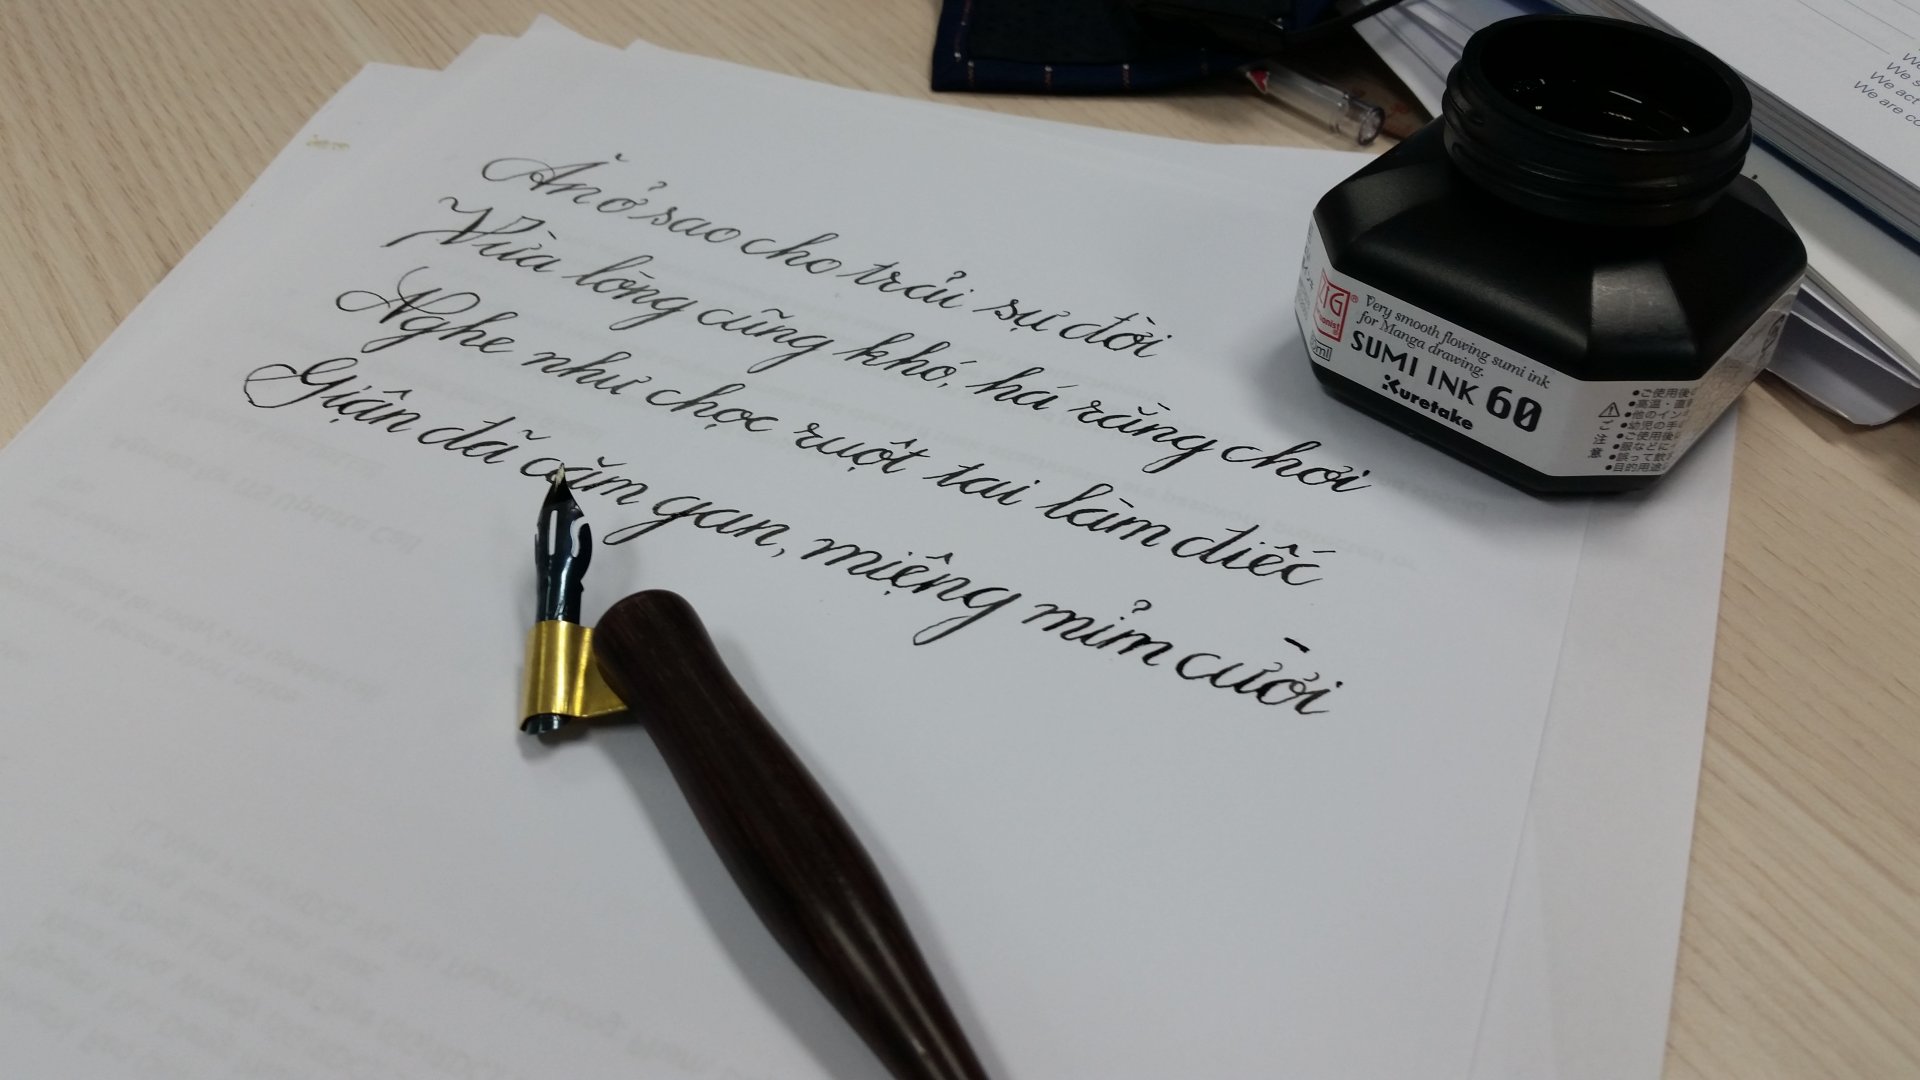 Ăn ở sao cho trải sự đời
Vừa lòng cũng khó, há rằng chơi
Nghe như chọc ruột tai làm điếc
Giận đã căm gan, miệng mỉm cười
ZIG
Very smooth flowing sumi ink
for Manga drawing.
SUMI INK 60
Kuretake
ご注意
●ご使用後
●高温・直
●他のイン
●幼児の手
●ご使用後
●服などに
●誤って飲
●目的用途
We
We s
We act
We are co